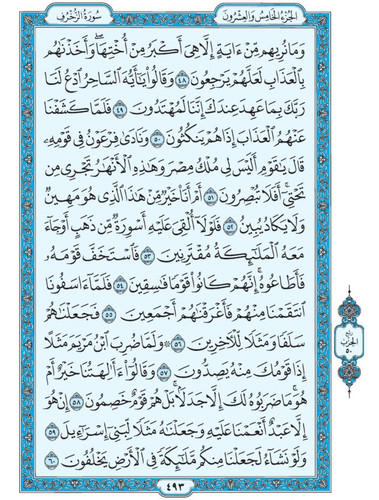 الجزء الخامس والعشرون
سورة الزخرف
وَمَا نُرِيهِم مِّنْ ءَايَةٍ إِلَّا هِىَ أَكْبَرُ مِنْ أُخْتِهَا ۖ وَأَخَذْنَٰهُم
بِٱلْعَذَابِ لَعَلَّهُمْ يَرْجِعُونَ ٤٨ وَقَالُوا۟ يَٰٓأَيُّهَ ٱلسَّاحِرُ ٱدْعُ لَنَا
رَبَّكَ بِمَا عَهِدَ عِندَكَ إِنَّنَا لَمُهْتَدُونَ ٤٩ فَلَمَّا كَشَفْنَا
عَنْهُمُ ٱلْعَذَابَ إِذَا هُمْ يَنكُثُونَ ٥٠ وَنَادَىٰ فِرْعَوْنُ فِى قَوْمِهِۦ
قَالَ يَٰقَوْمِ أَلَيْسَ لِى مُلْكُ مِصْرَ وَهَٰذِهِ ٱلْأَنْهَٰرُ تَجْرِى مِن
تَحْتِىٓ ۖ أَفَلَا تُبْصِرُونَ ٥١ أَمْ أَنَا۠ خَيْرٌ مِّنْ هَٰذَا ٱلَّذِى هُوَ مَهِينٌ
وَلَا يَكَادُ يُبِينُ ٥٢ فَلَوْلَآ أُلْقِىَ عَلَيْهِ أَسْوِرَةٌ مِّن ذَهَبٍ أَوْ جَآءَ
مَعَهُ ٱلْمَلَٰٓئِكَةُ مُقْتَرِنِينَ ٥٣ فَٱسْتَخَفَّ قَوْمَهُۥ
فَأَطَاعُوهُ ۚ إِنَّهُمْ كَانُوا۟ قَوْمًا فَٰسِقِينَ ٥٤ فَلَمَّآ ءَاسَفُونَا
ٱنتَقَمْنَا مِنْهُمْ فَأَغْرَقْنَٰهُمْ أَجْمَعِينَ ٥٥ فَجَعَلْنَٰهُمْ
سَلَفًا وَمَثَلًا لِّلْءَاخِرِينَ ٥٦ ۞ وَلَمَّا ضُرِبَ ٱبْنُ مَرْيَمَ مَثَلًا
إِذَا قَوْمُكَ مِنْهُ يَصِدُّونَ ٥٧ وَقَالُوٓا۟ ءَأَٰلِهَتُنَا خَيْرٌ أَمْ
هُوَ ۚ مَا ضَرَبُوهُ لَكَ إِلَّا جَدَلًۢا ۚ بَلْ هُمْ قَوْمٌ خَصِمُونَ ٥٨ إِنْ هُوَ
إِلَّا عَبْدٌ أَنْعَمْنَا عَلَيْهِ وَجَعَلْنَٰهُ مَثَلًا لِّبَنِىٓ إِسْرَٰٓءِيلَ ٥٩
وَلَوْ نَشَآءُ لَجَعَلْنَا مِنكُم مَّلَٰٓئِكَةً فِى ٱلْأَرْضِ يَخْلُفُونَ ٦٠
الحزب
٥٠
٤٩٣